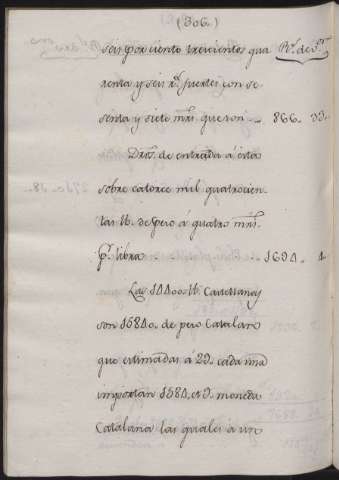 (306.)
seis por ciento trescientos qua R.^s de v.^n
renta y seis r.^s fuertes con se-
senta y siete mrs. que son .. 866. 33.
Dros. de entrada á esta
sobre catorce mil quatrocien-
tas lb. de peso á quatro mrs.
p.^r libra 1694. 4.
Las 14400. lb. Castellanas
son 15840. de peso Catalan
que estimadas á 2 cada una
importan 1584 moneda
Catalana las quales á un